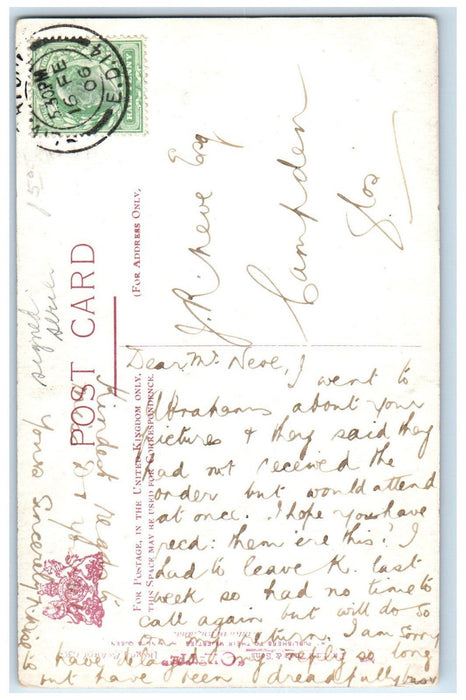 HALFPENNY
5.30PM
15 FE
06
E.D 14
J. R. Neve Esq
Campden
Glos
(FOR ADDRESS ONLY,
POST CARD
FOR POSTAGE, IN THE UNITED KINGDOM ONLY,
THIS SPACE MAY BE USED FOR CORRESPONDENCE.
signed
series
150
Dear Mr Neve, I went to
Abrahams about your
pictures & they said they
had not received the
order but would attend
at once. I hope you have
recd: them 'ere this? I
had to leave K. last
week so had no time to
call again but will do so
on my return. I am sorry
to have neglected your cards so long
but have been dreadfully busy
Kindest regards
yours sincerely